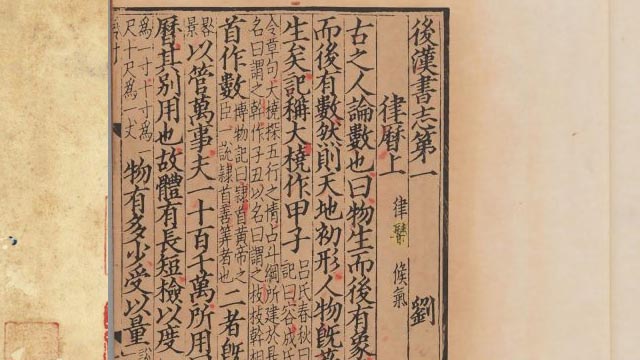 後漢書志第一 劉
律曆上 律 候氣
古之人論數也曰物生而後有象
而後有數然則天地初形人物既
生矣記稱大橈作甲子 呂氏春秋曰 記曰容成氏
令章句大橈探五行之情占斗綱所建於是 名曰謂之幹作子丑以名曰謂之枝枝幹相
首作數 博物記曰隸首黃帝之 臣一說隸首善筭者也 二者既
晷 景 以管萬事夫一十百千萬所用
曆其別用也故體有長短檢以度
為一寸十寸為 尺十尺為一丈 物有多少受以量 說